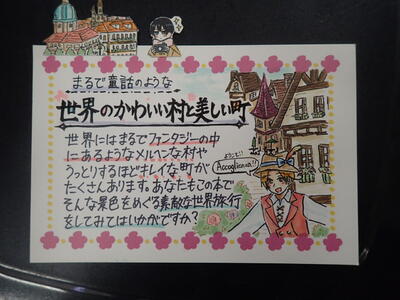 まるで童話のような
世界のかわいい村と美しい町
世界にはまるでファンタジーの中
にあるようなメルヘンな村や
うっとりするほどキレイな町が
たくさんあります。あなたもこの本で
そんな景色をめぐる素敵な世界旅行
をしてみてはいかがですか?
ようこそ!